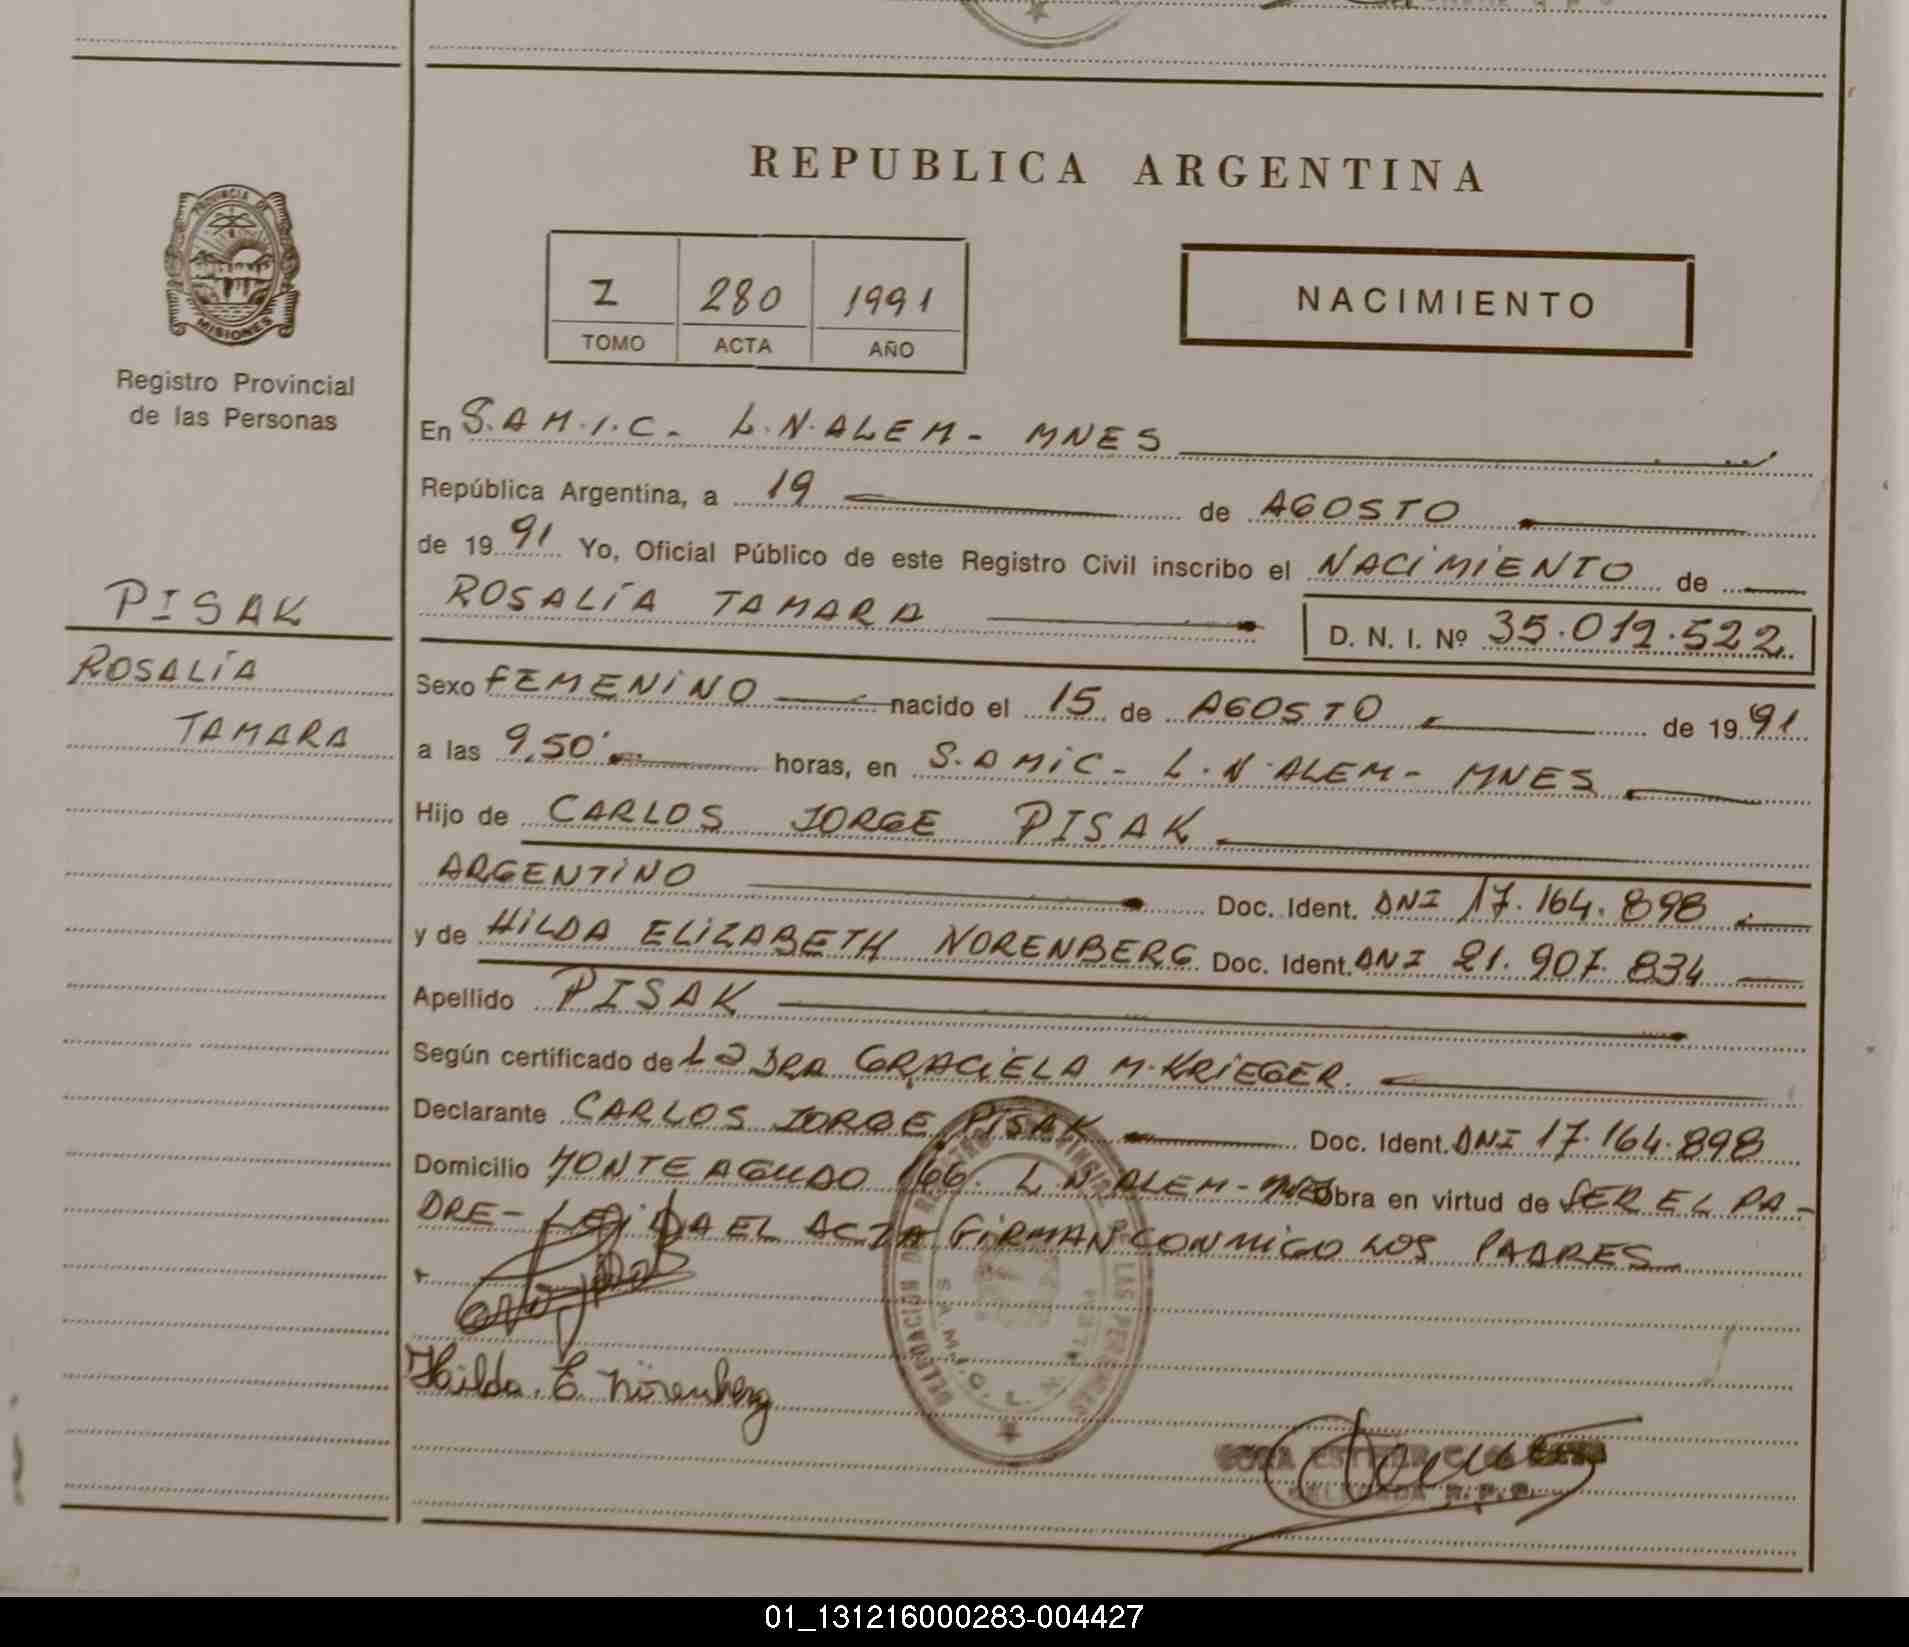 REPUBLICA ARGENTINA
PROVINCIA DE
MISIONES
Registro Provincial
de las Personas
280 1991
TOMO ACTA AÑO
NACIMIENTO
En S.A.M.I.C. - L.N.ALEM - MNES
República Argentina, a 19 de AGOSTO
de 1991 Yo, Oficial Público de este Registro Civil inscribo el NACIMIENTO de
ROSALÍA TAMARA D. N. I. Nº 35.012.522
PISAK
ROSALÍA
TAMARA
Sexo FEMENINO nacido el 15 de AGOSTO de 1991
a las 9,50' horas, en S.AMIC - L.N.ALEM - MNES
Hijo de CARLOS JORGE PISAK
ARGENTINO Doc. Ident. DNI 17.164.898
y de HILDA ELIZABETH NORENBERG Doc. Ident. DNI 21.907.834
Apellido PISAK
Según certificado de La DRA GRACIELA M. KRIEGER.
Declarante CARLOS JORGE PISAK Doc. Ident. DNI 17.164.898
Domicilio MONTEAGUDO 166. L.N.ALEM - MNES Obra en virtud de SER EL PA-
DRE - LEIDA EL ACTA FIRMAN CONMIGO LOS PADRES
DELEGACION DEL REGISTRO PROVINCIAL DE LAS PERSONAS
S.A.M.I.C. L. N.
Hilda E. Nörenberg
R.P.P.
01_131216000283-004427